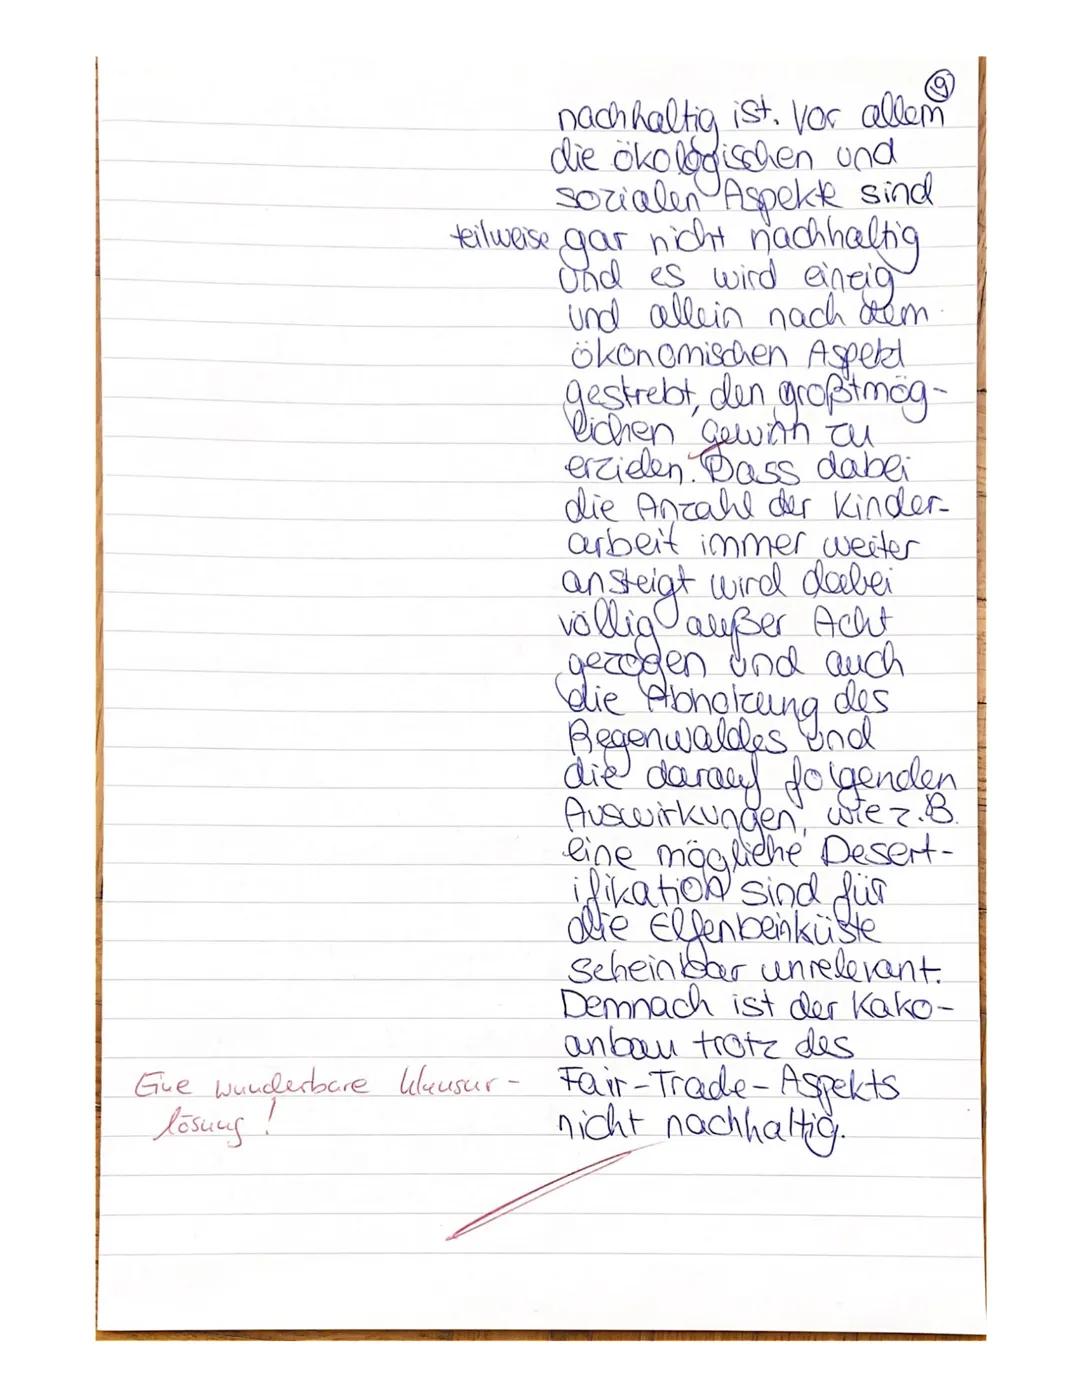 9
nachhaltig ist. Vor allem
die ökologischen und
sozialen Aspekte sind
teilweise gar nicht nachhaltig
und es wird einzig
und allein nach dem
ökonomischen Aspekt
gestrebt, den großtmög-
lichen Gewinn zu
erzielen. Dass dabei
die Anzahl der Kinder-
arbeit immer weiter
ansteigt wird dabei
völlig außer Acht
gezogen und auch
die Abholzung des
Regenwaldes und
die darauf folgenden
Auswirkungen, wie z.B.
eine mögliche Desert-
ifikation sind für
die Elfenbeinküste
scheinbar unrelevant.
Demnach ist der Kako-
anbau trotz des
Fair-Trade-Aspekts
nicht nachhaltig.
Eine wunderbare Klausur-
lösung!